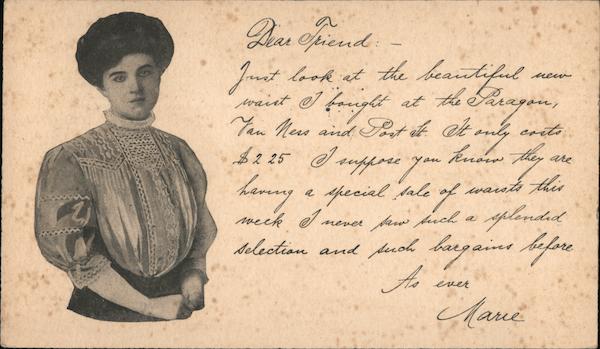 Dear Friend: -
Just look at the beautiful new
waist I bought at the Paragon,
Van Ness and Post St. It only costs
$2 25 I suppose you know they are
having a special sale of waists this
week I never saw such a splendid
selection and such bargains before
As ever
Marie